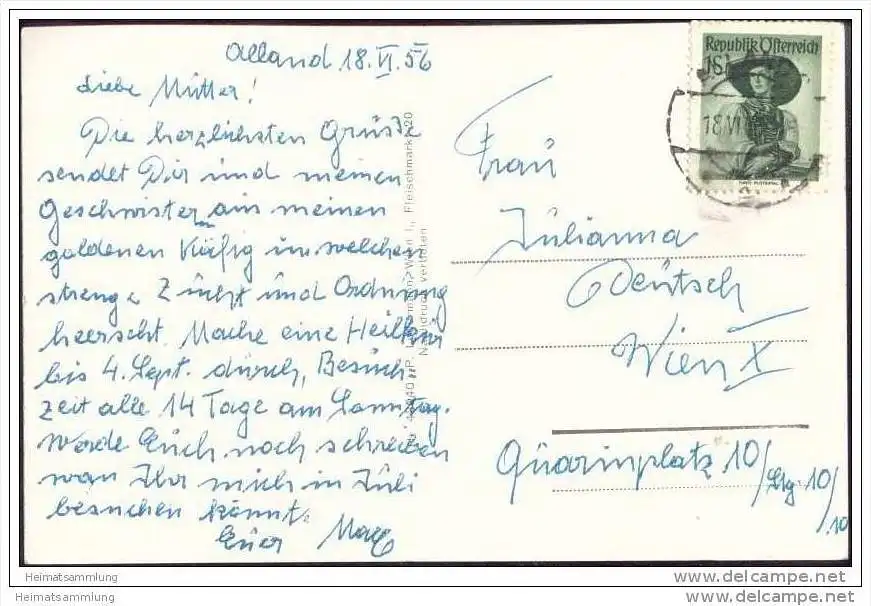 Alland 18.VI.56
Liebe Mutter!
Die herzlichsten Grüsse
sendet Dir und meinen
Geschwister aus meinen
goldenen Käfig in welchen
strenge Zucht und Ordnung
herrscht. Mache eine Heilkur
bis 4. Sept. durch, Besuch
zeit alle 14 Tage am Sonntag.
Werde Euch noch schreiben
wan Ihr mich in Juli
besuchen könnt.
Euer Max
Nachdruck verboten
Wien I., Fleischmarkt 20
Republik Österreich
1S
18.VI
Frau
Julianna
Deutsch
Wien X
Quarinplatz 10/Stg. 10/
10
Heimatsammlung
Heimatsammlung
www.delcampe.net
www.delcampe.net